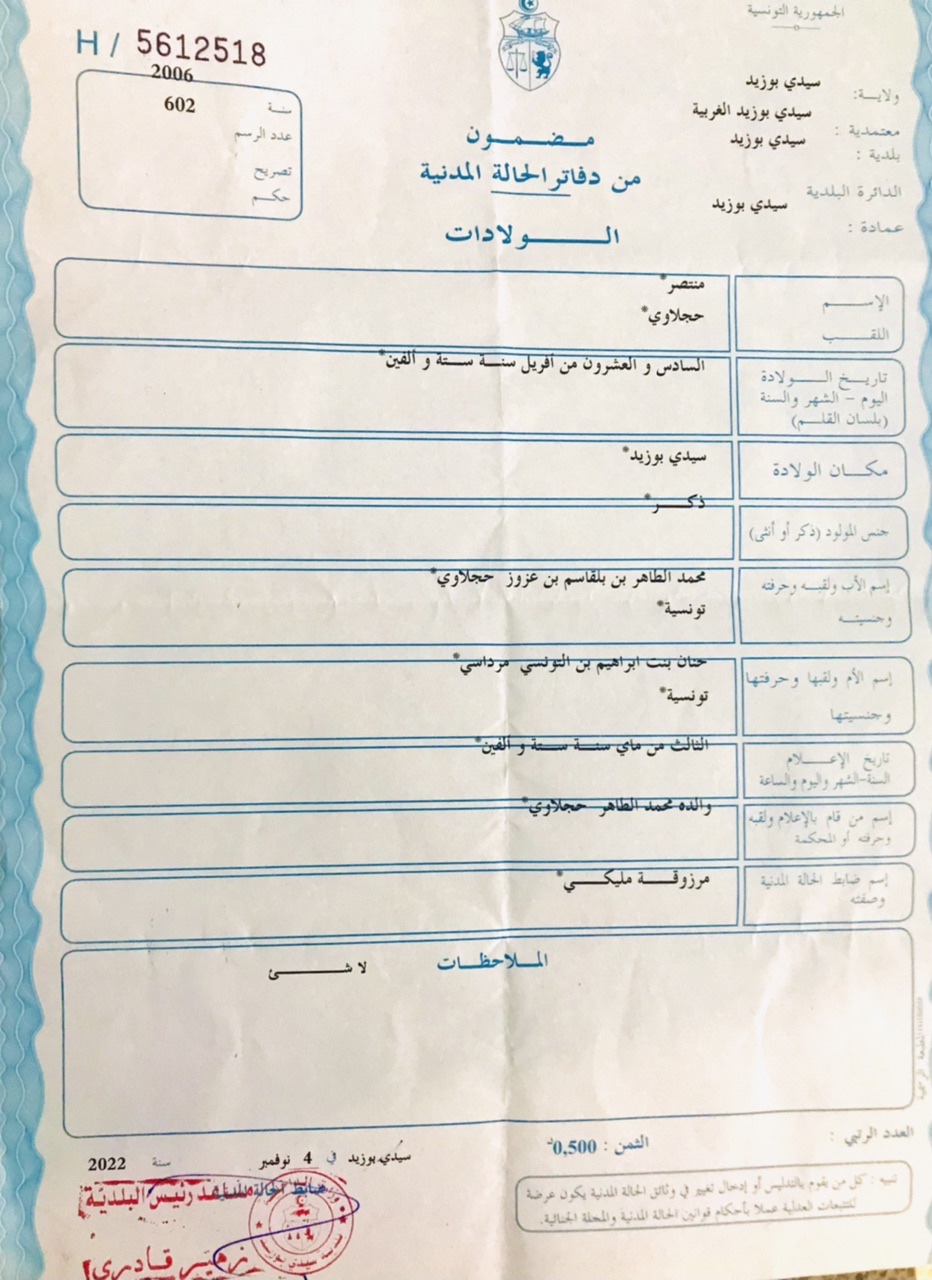 الجمهورية التونسية
H / 5612518
ولايـة: سيدي بوزيد
معتمدية : سيدي بوزيد الغربية
بلدية : سيدي بوزيد
الدائرة البلدية
عمادة : سيدي بوزيد
2006
سنة 602
عدد الرسم
تصريح
حكم
مضمون
من دفاتر الحالة المدنية
الولادات
الإسم منتصر*
اللقب حجلاوي*
تاريخ الولادة السادس و العشرون من أفريل سنة ستة و ألفين*
اليوم - الشهر والسنة
(بلسان القلم)
مكان الولادة سيدي بوزيد*
جنس المولود (ذكر أو أنثى) ذكر*
إسم الأب ولقبه وحرفته محمد الطاهر بن بلقاسم بن عزوز حجلاوي*
وجنسيته تونسية*
إسم الأم ولقبها وحرفتها حنان بنت ابراهيم بن التونسي مرداسي*
وجنسيتها تونسية*
تاريخ الإعلام الثالث من ماي سنة ستة و ألفين*
السنة-الشهر واليوم والساعة
إسم من قام بالإعلام ولقبه والده محمد الطاهر حجلاوي*
وحرفته أو المحكمة
إسم ضابط الحالة المدنية مرزوقة مليكي*
وصفته
الملاحظات لا شئ
العدد الرتبي :
الثمن : 0,500د
سيدي بوزيد في 4 نوفمبر سنة 2022
تنبيه : كل من يقوم بالتدليس أو إدخال تغيير في وثائق الحالة المدنية يكون عرضة
للتتبعات العدلية عملا بأحكام قوانين الحالة المدنية والمجلة الجنائية.
ضابط الحالة المدنية
مساعد رئيس البلدية
زهير قادري